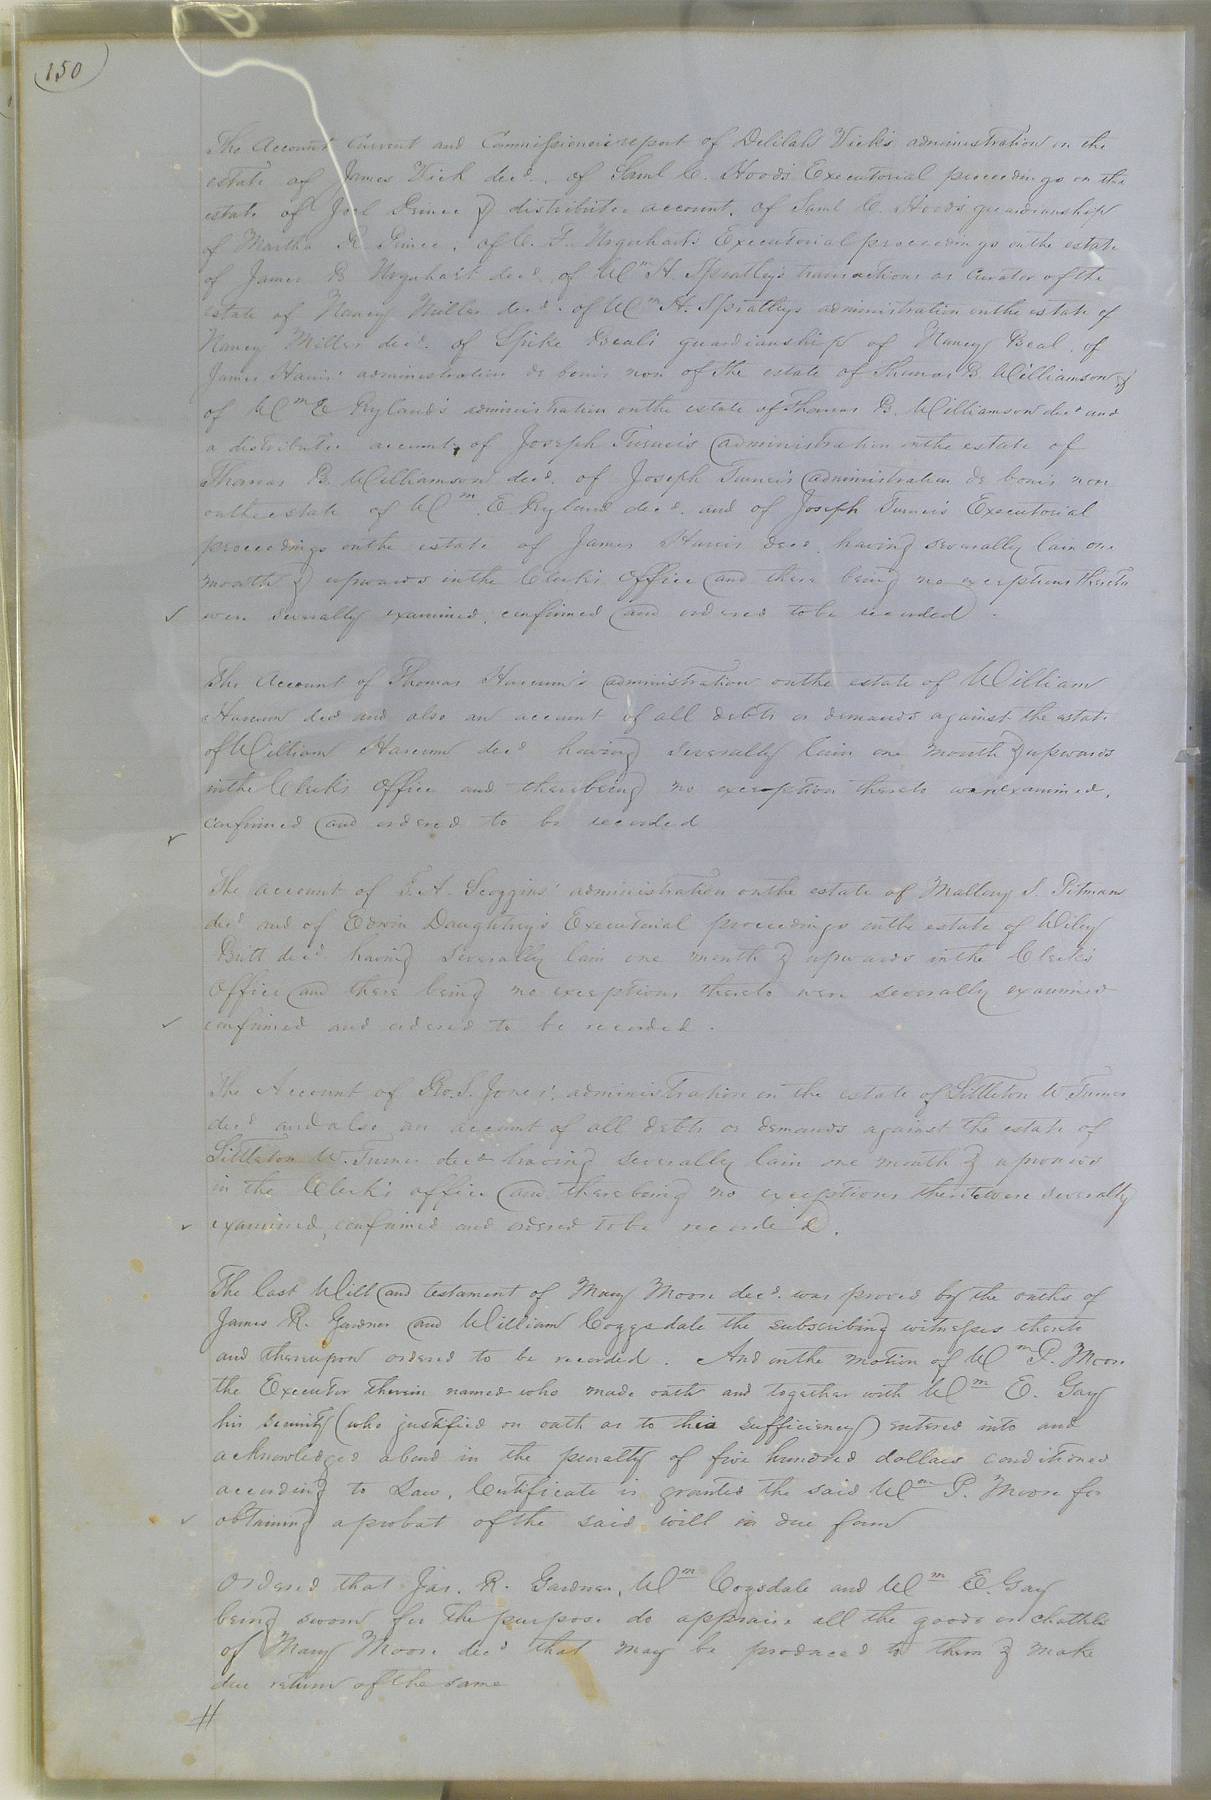 150
The Account Current and Commissioners report of Delilah Vick's administration on the
estate of James Vick decd. of Saml C. Hood's Executorial proceedings on the
estate of Joel Prince & distributee account, of Saml C. Hood's guardianship
of Martha R. Prince, of C. F. Urquhart's Executorial proceedings onthe estate
of James B Urquhart decd. of Wm H. Spratley's transactions as Curator of the
estate of Nancy Miller decd. of Wm H. Spratleys administration onthe estate of
Nancy Miller decd. of Spike Beal's guardianship of Nancy Beal, of
James Harris' administration de bonis non of the estate of Thomas B. Williamson &
of Wm E Ryland's administration onthe estate of Thomas B. Williamson decd and
a distributee account, of Joseph Turner's administration onthe estate of
Thomas B. Williamson decd. of Joseph Turner's administration de bonis non
onthe estate of Wm. E Ryland decd. and of Joseph Turner's Executorial
proceedings onthe estate of James Harris decd. having severally lain one
month & upwards inthe Clerk's Office and there being no exceptions thereto
were severally examined, confirmed and ordered to be recorded.
The Account of Thomas Harcum's administration onthe estate of William
Harcum decd and also an account of all debts or demands against the estate
of William Harcum decd having severally lain one month & upwards
inthe Clerk's Office and therebeing no exception thereto were examined,
confirmed and ordered to be recorded
The account of E. A. Scoggins' administration onthe estate of Mallory S. Pitman
decd and of Edwin Daughtrey's Executorial proceedings onthe estate of Wiley
Britt decd. having severally lain one month & upwards inthe Clerk's
Office and there being no exceptions thereto were severally examined
confirmed and ordered to be recorded.
The Account of Ro. S. Jones' administration on the estate of Littleton W Turner
decd and also an account of all debts or demands against the estate of
Littleton W. Turner decd having severally lain one month & upwards
in the Clerk's office and therebeing no exceptions thereto were severally
examined, confirmed and ordered to be recorded.
The last Will and testament of Mary Moore decd. was proved by the oaths of
James R. Gardner and William Coggsdale the subscribing witnesses thereto
and thereupon ordered to be recorded. And onthe motion of Wm P. Moore
the Executor therein named who made oath and together with Wm E. Gay
his security (who justified on oath as to his sufficiency) entered into and
acknowledged abond in the penalty of five hundred dollars conditioned
according to Law, Certificate is granted the said Wm P. Moore for
obtaining aprobat ofthe said will in due form
Ordered that Jas. R. Gardner, Wm Cogsdale and Wm E. Gay
being sworn for the purpose do appraise all the goods or chattels
of Mary Moore decd that may be produced to them & make
due return of the same